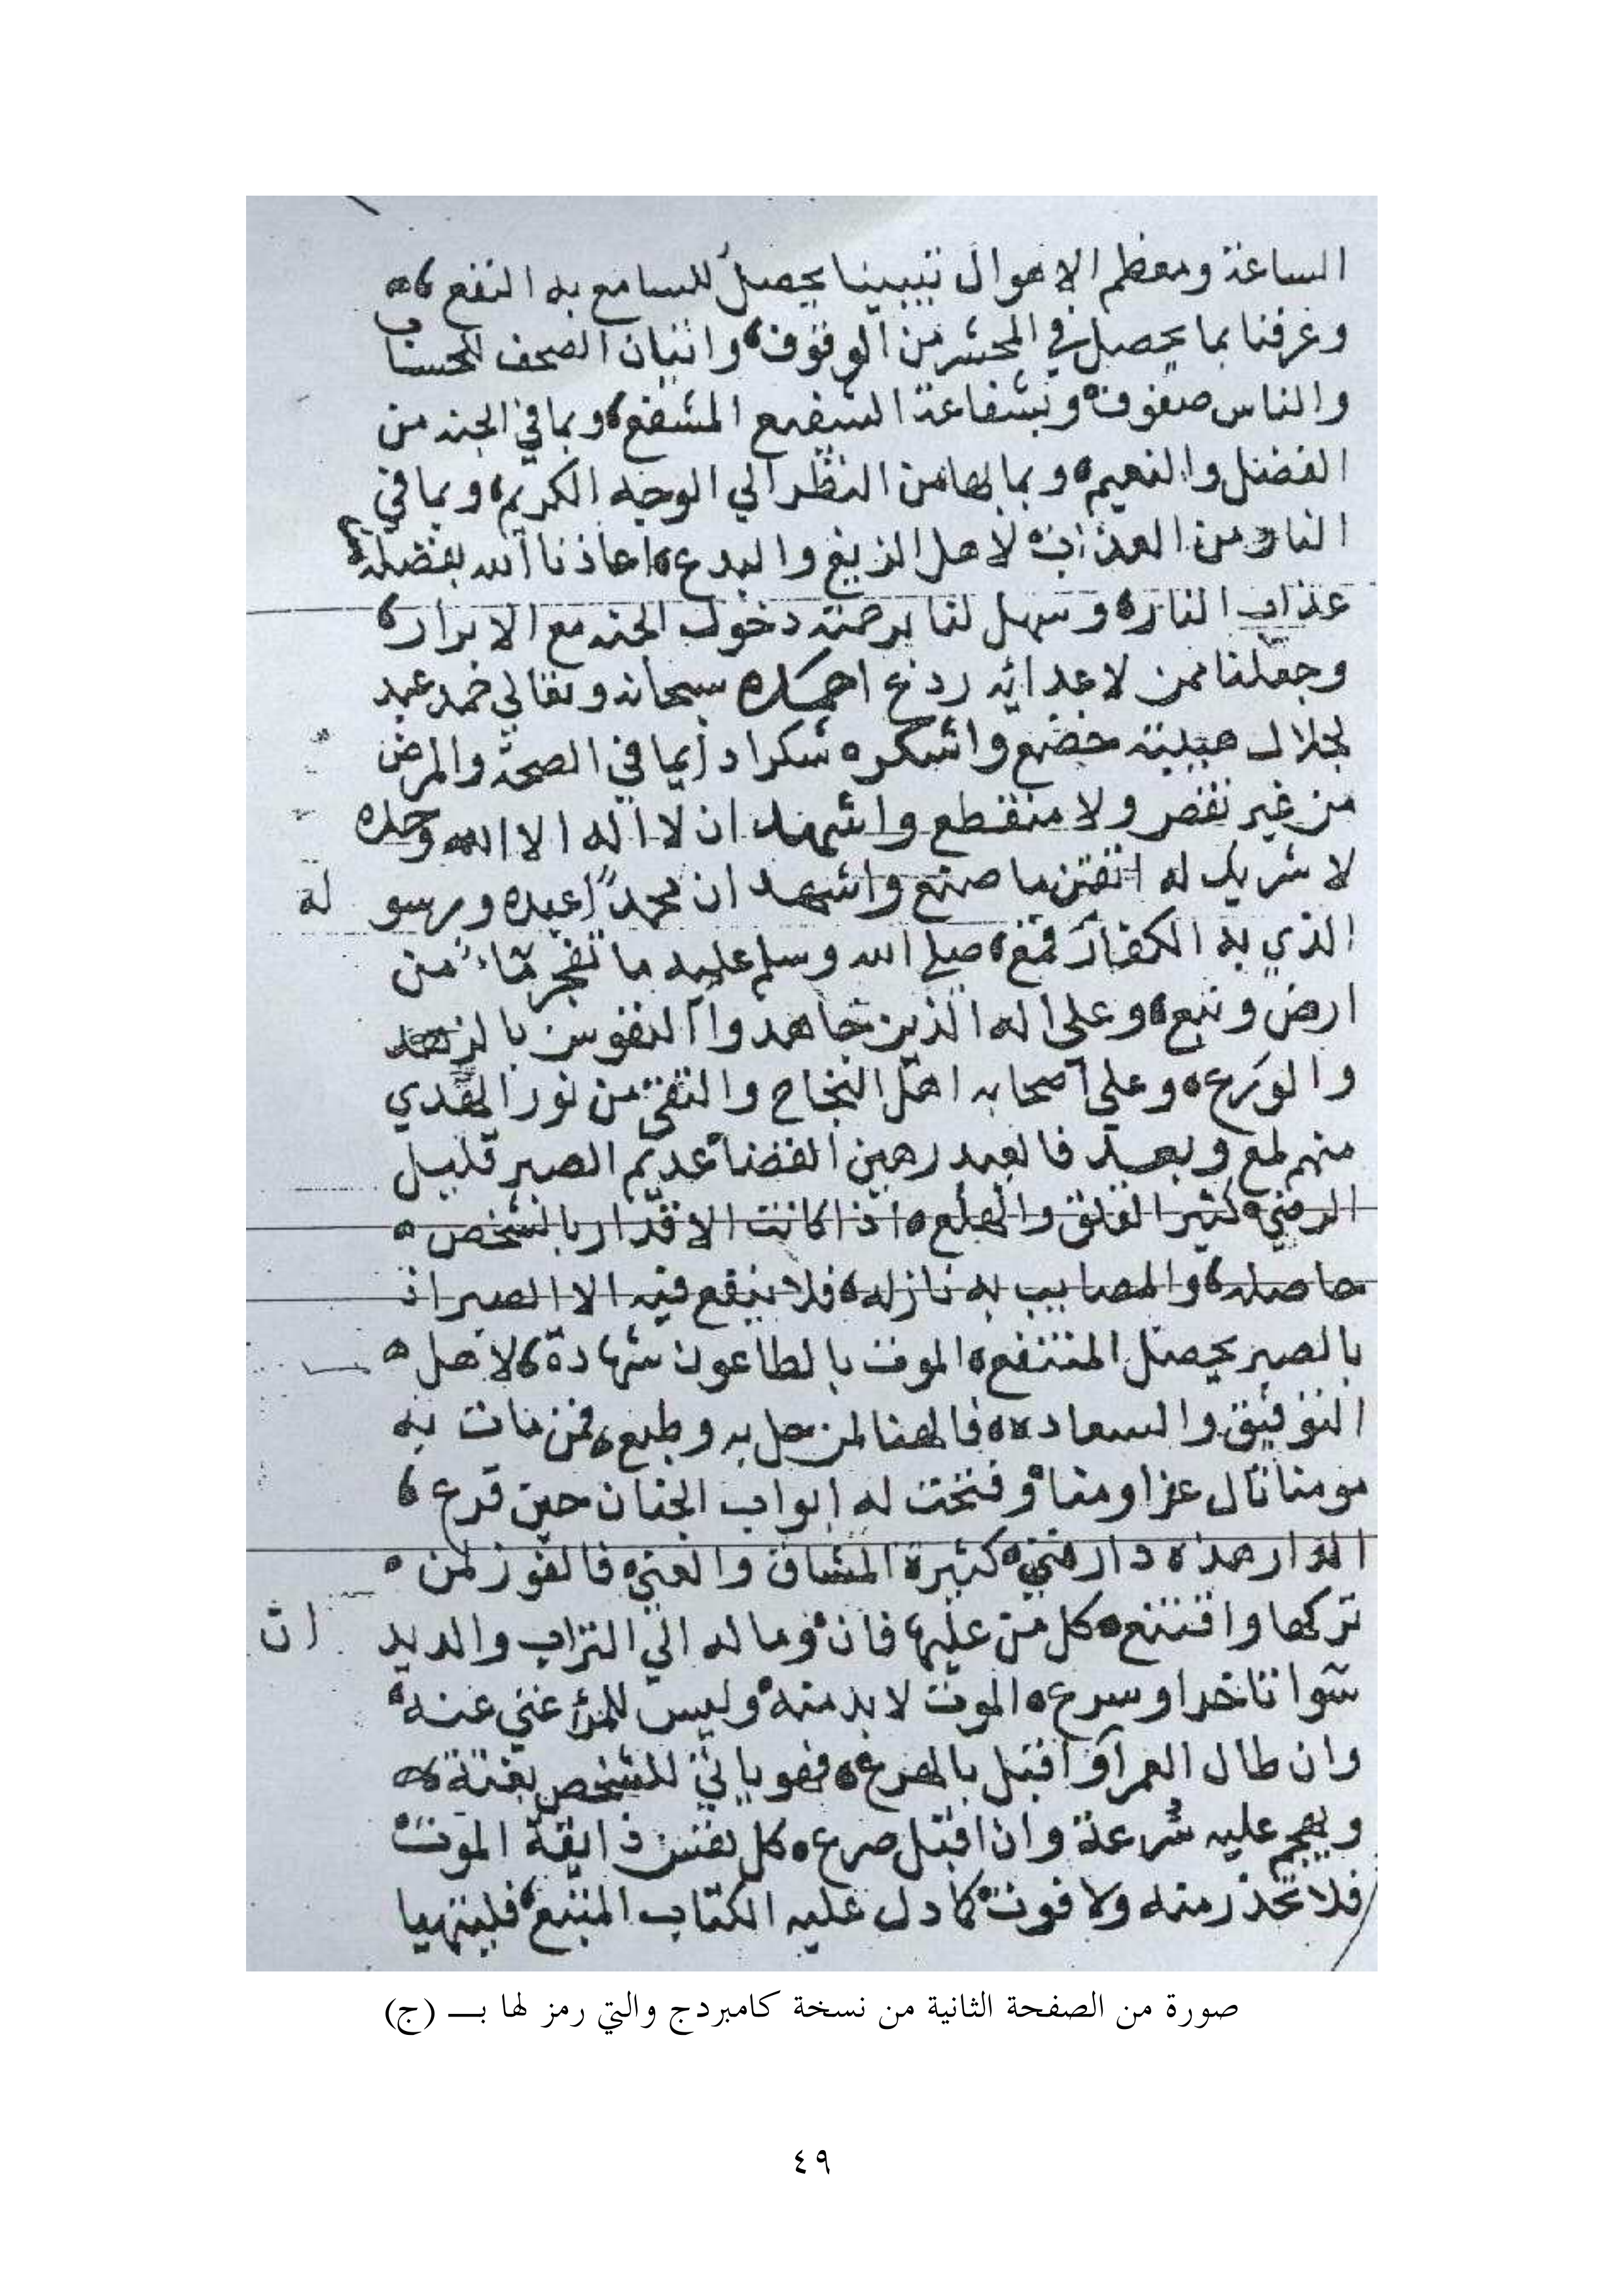 الساعة ومعظم الاهوال تبيينا يحصل للسامع به النفع
وعرفنا بما يحصل في المحشر من الوقوف واتيان الصحف للحساب
والناس صفوف وبشفاعة الشفيع المشفع وبما في الجنه من
الفضل والنعيم وبما لها من النظر الي الوجه الكريم وبما في
النار من العذاب لاهل الزيغ والبدع اعاذنا الله بفضله من
عذاب النار وسهل لنا برحمته دخول الجنه مع الابرار
وجعلنا ممن لاعدائه ردع احمده سبحانه وتعالي حمد عبد
لجلال هيبته خضع واشكره شكرا دايما في الصحة والمرض
من غير نقص ولا منقطع واشهد ان لا اله الا الله وحده
لا شريك له اتقن ما صنع واشهد ان محمداً عبده ورسو له
الذي به الكفار قمع صلي الله وسلم عليه ما تفجر ماء من
ارض ونبع وعلي اله الذين جاهدوا النفوس بالزهد
والورع وعلي اصحابه اهل النجاح والتقي من نور الهدي
منهم لمع وبعد فالعبد رهين القضا عديم الصبر قليل
الرضي كثير القلق والهلع اذا كانت الاقدار بالشخص
حاصله والمصايب به نازله فلا ينفع فيه الا الصبر اذ
بالصبر يحصل المنتفع الموت بالطاعون شهادة لاهل
التوفيق والسعاده فالهنا لمن حل به وطبع فمن مات به
مومنا نال عزا ومنا وفتحت له ابواب الجنان حين قرع
الدار هذه دار فتن كثيرة المشاق والعني فالفوز لمن
تركها واقتنع كل من عليها فان وماله الي التراب والديد ان
سوا تاخر او سرع الموت لا بد منه وليس للمرء غني عنه
وان طال العمر او اقبل بالهرع فهو ياتي للشخص بغتة
ويهجم عليه سرعة وان اقبل صرع كل نفس ذايقة الموت
فلا تحذر منه ولا فوت كما دل عليه الكتاب المتبع فليتهيا
صورة من الصفحة الثانية من نسخة كامبردج والتي رمز لها بـ (ج)
٤٩